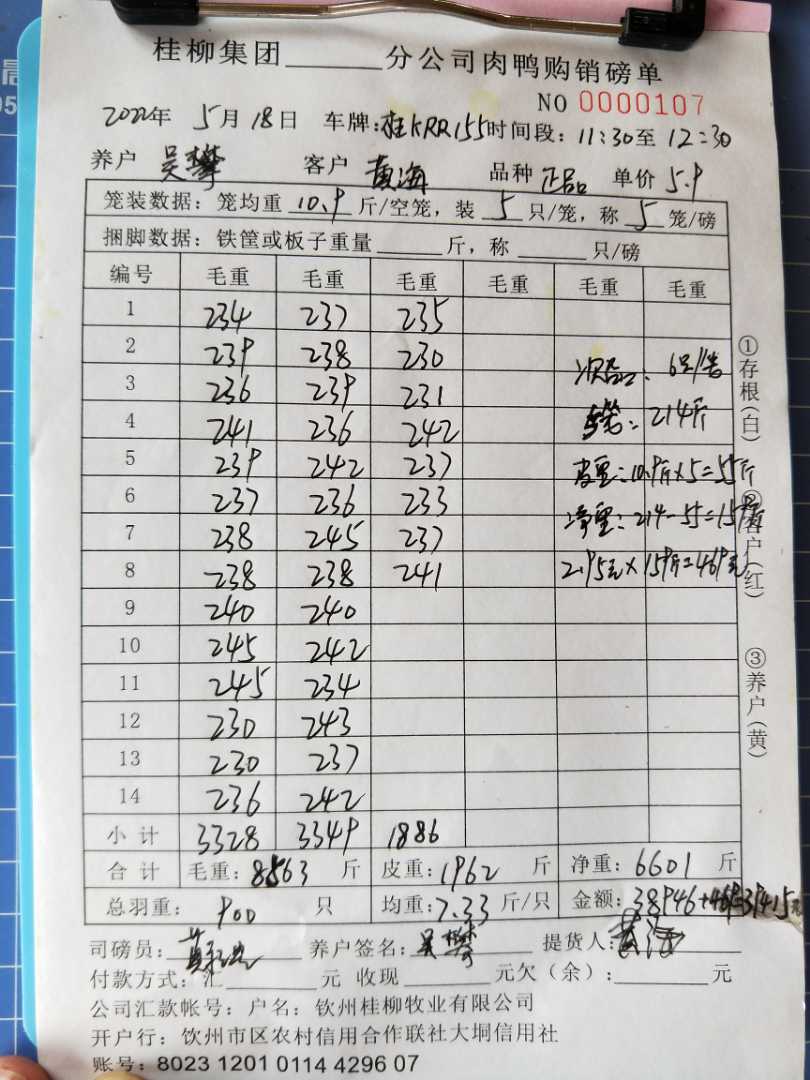 桂柳集团______分公司肉鸭购销磅单
NO 0000107
2022年 5月18日 车牌:桂KRR155 时间段: 11:30至 12:30
养户 吴攀 客户 黄海 品种 正品 单价 5.9
笼装数据: 笼均重 10.9 斤/空笼, 装 5 只/笼, 称 5 笼/磅
捆脚数据: 铁筐或板子重量______斤, 称______只/磅
编号 毛重 毛重 毛重 毛重 毛重 毛重
1 234 237 235
2 239 238 230
3 236 239 231 次品: 6只/笼
4 241 236 242 5笼: 214斤
5 239 242 237 皮重: 10.9斤×5=55斤
6 237 236 233 净重: 214-55=159斤
7 238 245 237
8 238 238 241 2.95元×159斤=469元
9 240 240
10 245 242
11 245 234
12 230 243
13 230 237
14 236 242
小计 3328 3349 1886
合计 毛重: 8563 斤 皮重: 1962 斤 净重: 6601 斤
总羽重: 900 只 均重: 7.33 斤/只 金额: 38946+469=39415元
司磅员: 养户签名: 吴攀 提货人: 黄海
付款方式: 汇______元 收现______元欠(余):______元
公司汇款帐号: 户名: 钦州桂柳牧业有限公司
开户行: 钦州市区农村信用合作联社大垌信用社
账号: 8023 1201 0114 4296 07
①存根(白) ②客户(红) ③养户(黄)